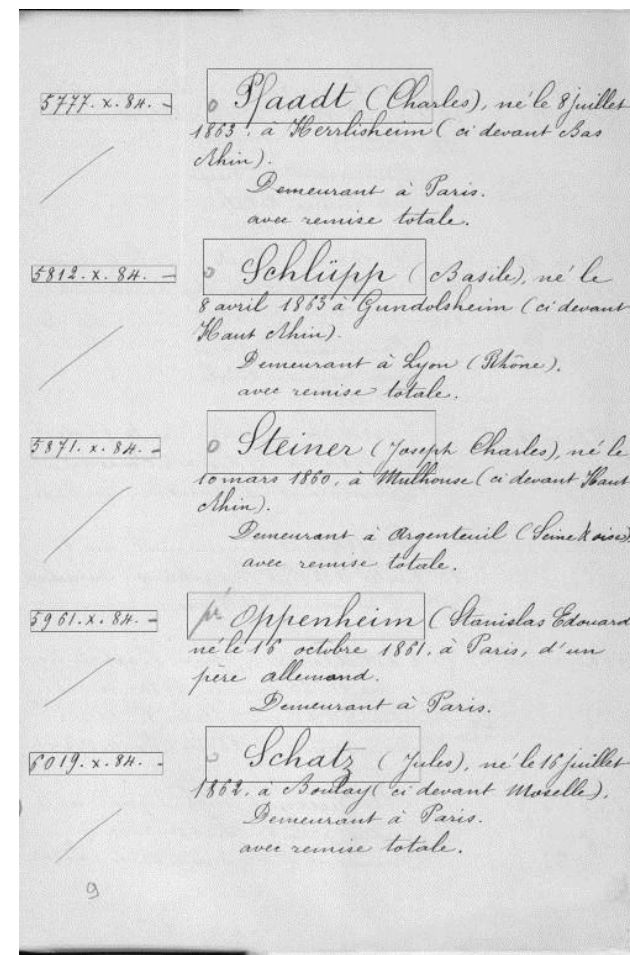 5777. x. 84. - o Pfaadt (Charles), né le 8 juillet
1863, à Herrlisheim (ci devant Bas
Rhin).
Demeurant à Paris.
avec remise totale.
5812. x. 84. - o Schlüpp (Basile), né le
8 avril 1863 à Gundolsheim (ci devant
Haut Rhin).
Demeurant à Lyon (Rhône).
avec remise totale.
5871. x. 84. - o Steiner (Joseph Charles), né le
10 mars 1860, à Mulhouse (ci devant Haut
Rhin).
Demeurant à Argenteuil (Seine & Oise).
avec remise totale.
5961. x. 84. - Oppenheim (Stanislas Edouard
né le 16 octobre 1861, à Paris, d'un
père allemand.
Demeurant à Paris.
6019. x. 84. - o Schatz (Jules), né le 16 juillet
1862, à Boulay (ci devant Moselle).
Demeurant à Paris.
avec remise totale.
9